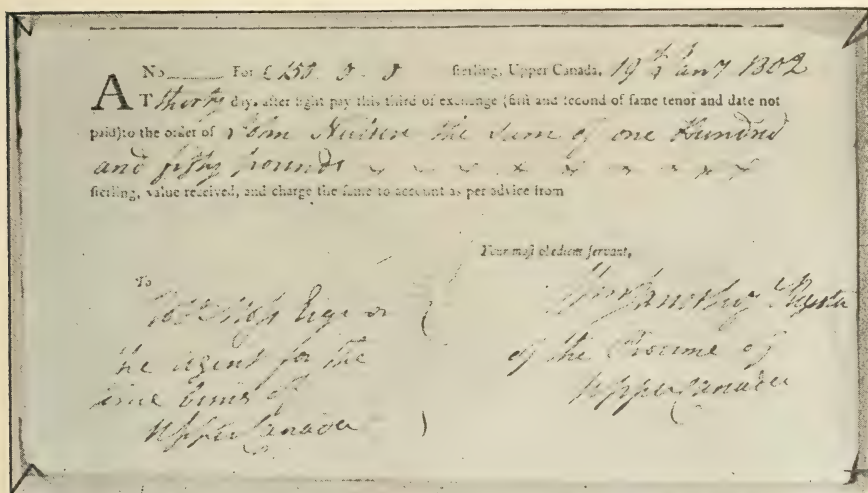 No ____ For £150.0.0 sterling, Upper Canada, 19th Jany 1802
AT thirty days after sight pay this third of exchange (first and second of same tenor and date not
paid) to the order of the sum of one Hundred
and fifty pounds
sterling, value received, and charge the same to account as per advice from
Your most obedient servant,
To
Esqr or
the agent for the
time being of
Upper Canada
Wm Jarvis
of the Province of
Upper Canada